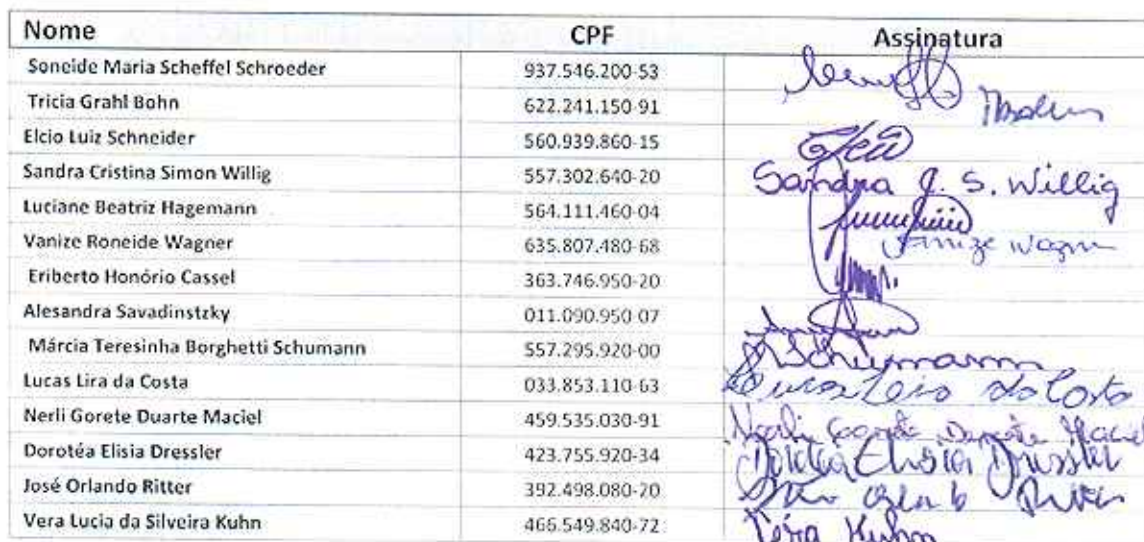 Nome CPF Assinatura
Soneide Maria Scheffel Schroeder 937.546.200-53
Tricia Grahl Bohn 622.241.150-91
Elcio Luiz Schneider 560.939.860-15
Sandra Cristina Simon Willig 557.302.640-20 Sandra C. S. Willig
Luciane Beatriz Hagemann 564.111.460-04
Vanize Roneide Wagner 635.807.480-68 Vanize Wagner
Eriberto Honório Cassel 363.746.950-20
Alesandra Savadinstzky 011.090.950-07
Márcia Teresinha Borghetti Schumann 557.295.920-00 Schumann
Lucas Lira da Costa 033.853.110-63 Lucas Lira da Costa
Nerli Gorete Duarte Maciel 459.535.030-91 Nerli Gorete Duarte Maciel
Dorotéa Elisia Dressler 423.755.920-34 Dorotéa Elisia Dressler
José Orlando Ritter 392.498.080-20 Orlando Ritter
Vera Lucia da Silveira Kuhn 466.549.840-72 Vera Kuhn